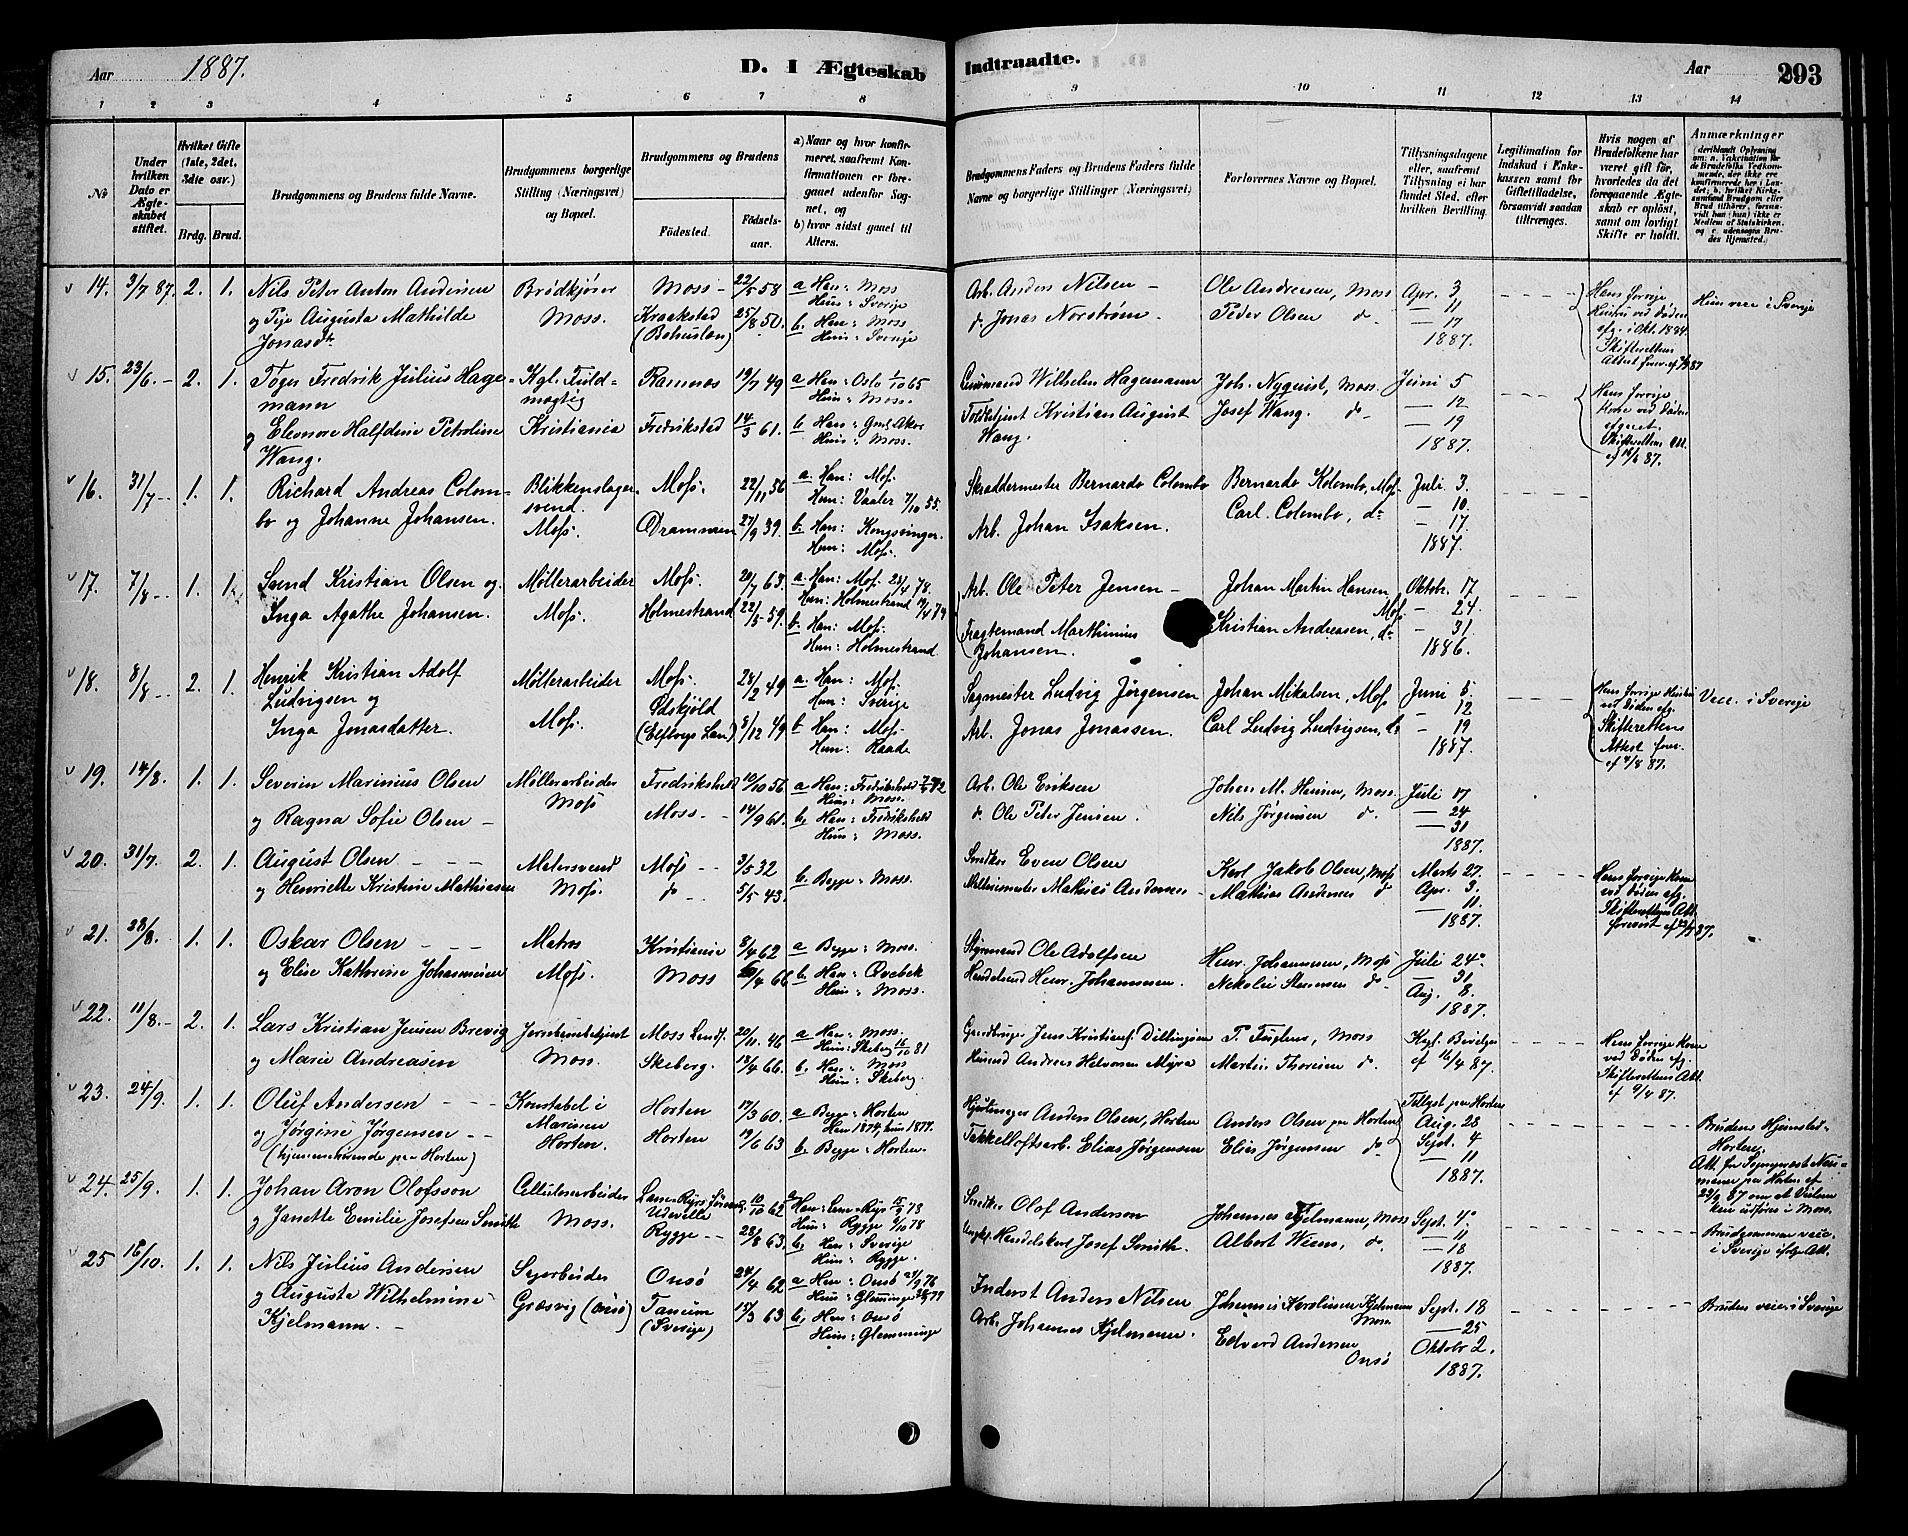 Aar 1887.
D. I Ægteskab Indtraadte.
Aar 293
1 2 3 4 5 6 7 8 9 10 11 12 13 14
No
Under hvilken Dato er Ægteskabet stiftet.
Hvilket Gifte (1ste, 2det, 3die osv.)
Brdg. Brud.
Brudgommens og Brudens fulde Navne.
Brudgommens borgerlige Stilling (Næringsvei) og Bopæl.
Brudgommens og Brudens
Fødested. Fødselsaar.
a) Naar og hvor konfirmeret, saafremt Konfirmationen er foregaaet udenfor Sognet, og
b) hvor sidst gaaet til Alters.
Brudgommens Faders og Brudens Faders fulde Navne og borgerlige Stillinger (Næringsvei)
Forlovernes Navne og Bopæl.
Tillysningsdagene eller, saafremt Tillysning ei har fundet Sted, efter hvilken Bevilling.
Legitimation for Indskud i Enkekassen samt for Giftetilladelse, forsaavidt saadan tiltrænges.
Hvis nogen af Brudefolkene har været gift før, hvorledes da det foregaaende Ægteskab er opløst, samt om lovligt Skifte er holdt.
Anmærkninger
14. 3/7 87. 2. 1. Nils Peter Anton Andersen
og Augusta Mathilde
Jonasdtr
Brødkjører
Moss.
Moss - 22/5 58
Kraakstad 25/8 50.
(Bohuslæn)
a Han: Moss
Hun: Sverige
b. Han: Moss
Hun: Sverige
Arb. Anders Nilsen -
d. Jonas Norstrøm.
Ole Andresen, Moss
Peder Olsen d.
Apr. 3
- 11
- 17
1887.
Hans forrige
Hustru ved Døden
afg. i Okt. 1884.
Skifterettens
Attest
Hun vac. i Sverige
15. 23/6. - 2. 1. Fredrik Julius Hagemann
og Elenore Halfdine Petroline
Wang.
Kgl. Fuldmægtig
Kristiania
Ramnes 19/7 49
Fredrikstad 14/3 61.
a Han: Oslo 1/10 65
Hun: Moss.
b Han: Gml. Aker
Hun: Moss.
Wilhelm Hagemann
Toldbetjent Kristian August
Wang.
Joh. Nyquist, Moss
Josef Wang. do
Juni 5
- 12
- 19
1887.
Hans forrige
Kone ved Døden
afgaaet.
Skifterettens Att.
16. 31/7 - 1. 1. Richard Andreas Colombo
og Johanne Johansen.
Blikkenslagersvend.
Moss.
Moss. 22/11 56
Drammen 27/9 39.
a. Han: Moss.
Hun: Vaaler 7/10 55.
b. Han: Kongsvinger.
Hun: Moss.
Skræddermester Bernardo Colombo
Arb. Johan Isaksen.
Bernardo Kolombo, Moss
Carl. Colombo, d:
Juli 3.
- 10.
- 17.
1887.
17. 7/8 - 1. 1. Svend Kristian Olsen og
Inga Agathe Johansen.
Møllerarbeider
Moss.
Moss. 20/7 63.
Holmestrand 22/5 59.
a. Han: Moss. 28/4 78.
Hun: Holmestrand
b. Han: Moss.
Hun: Holmestrand.
Arb. Ole Peter Jensen -
Fragtemand Marthinius
Johansen.
Johan Martin Hansen
Moss
Kristian Andreasen, d:
Oktobr. 17
- 24.
- 31.
1886.
18. 8/8 - 2. 1. Henrik Kristian Adolf
Ludvigsen og
Inga Jonasdatter.
Møllerarbeider
Moss.
Moss. 28/2 49
Edskjöld
(Elfsborgs Län) 8/12 49
a. Han: Moss.
Hun: Sverige
b Han: Moss.
Hun: Raade
Sagmester Ludvig Jørgensen
Arb. Jonas Jonassen.
Johan Mikalsen, Moss
Carl Ludvig Ludvigsen, d:
Juni 5.
- 12
- 19
1887.
Hans forrige Hustru
ved Døden afg.
Skifterettens
Attest
Vacc. i Sverige
19. 14/8. 1. 1. Severin Marinius Olsen
og Ragna Sofie Olsen -
Møllerarbeider
Moss
Fredrikshald 10/10 56
Moss - 14/9 61.
a Han: Fredrikshald
Hun: Moss.
b, Han: Fredrikshald
Hun: Moss.
Arb. Ole Eriksen
d. Ole Peter Jensen.
Johan M. Hansen, Moss
Nils Jørgensen d.
Juli 17
- 24
- 31
1887.
20. 31/7. 2. 1. August Olsen
og Henriette Kristine Mathiasen
Malersvend
Moss.
Moss - 3/5 32
d - 5/5 43.
b. Begge: Moss.
Snedker Even Olsen
Mathias Andersen
Karl Jakob Olsen, Moss
Mathias Andersen d
Marts 27.
Apr. 3.
- 11.
1887.
Hans forrige Kone
ved Døden afg.
Skifterettens Att.
21. 28/8. 1. 1. Oskar Olsen
og Elise Kathrine Johannesen
Matros
Moss.
Kristiania 8/4 62
Moss
a Begge: Moss.
b. Han: Qvebek
Hun: Moss.
Styrmand Ole Adolfsen
Henr. Johannesen.
Henr. Johannesen, Moss
Nikolai Sørensen do
Juli 24.
- 31
Aug. 8.
1887.
22. 11/8. - 2. 1. Lars Kristian Jensen Brevig
og Marie Andreasen
Moss.
Moss Landf. 20/11 46
Skeberg. 18/4 66.
a Han: Moss.
Hun: Skeberg 16/10 81
b. Han: Moss
Hun: Skeberg
Gaardbruger Jens Kristians. Dillingøen
Andreas Helvorsen Myra
P. Fuglem, Moss
Martin Thoresen d.
Kgl. Bevilgn
af 16/4 87.
Hans forrige Kone
ved Døden afg.
Skifterettens Att.
af 9/4 87.
23. 24/9. 1. 1. Oluf Andersen
og Jørgine Jørgensen
(hjemmehørende paa Horten)
Konstabel i
Marinen
Horten.
Horten 17/3 60.
Horten 19/6 63
a Begge: Horten
Han 1874, hun 1877.
b. Begge: Horten.
Anders Olsen, Horten
Takkelloftsarb. Elias Jørgensen
Anders Olsen paa Horten
Elias Jørgensen do
Tillyst paa Horten
Aug. 28
Sept. 4
- 11
1887.
Brudens Hjemsted
Horten.
24. 25/9. 1. 1. Johan Aron Olofsson
og Janette Emilie Josefsen Smith
Cellulosearbeider
Moss.
Udevalla 10/10 62
Rygge - 28/8 63.
a Han: 78
Hun: Rygge 6/10 78
b, Han: Sverige
Hun: Rygge.
Snedker Olof Anderson
Handelskarl Josef Smith.
Johannes Kjelmann, Moss
Albert Wiens, do.
Sept. 4.
- 11
- 18
1887.
Brudgommen vacc.
i Sverige ifølge Att.
25 16/10. 1. 1. Nils Julius Andersen
og Augusta Wilhelmine
Kjelmann.
Sagarbeider
Græsvig (Onsø)
Onsø 24/4 62
Tanum 15/3 63
(Sverige)
a Han: Onsø
Hun: Glemminge
b, Han: Onsø
Hun: Glemminge
Inderst Anders Nilsen
Arb. Johannes Kjelmann.
Johannes Karolinsen Kjelmann
Moss.
Edvard Andersen
Onsø
Sept. 18
- 25
Oktobr 2.
1887.
Bruden vacc. i Sverige